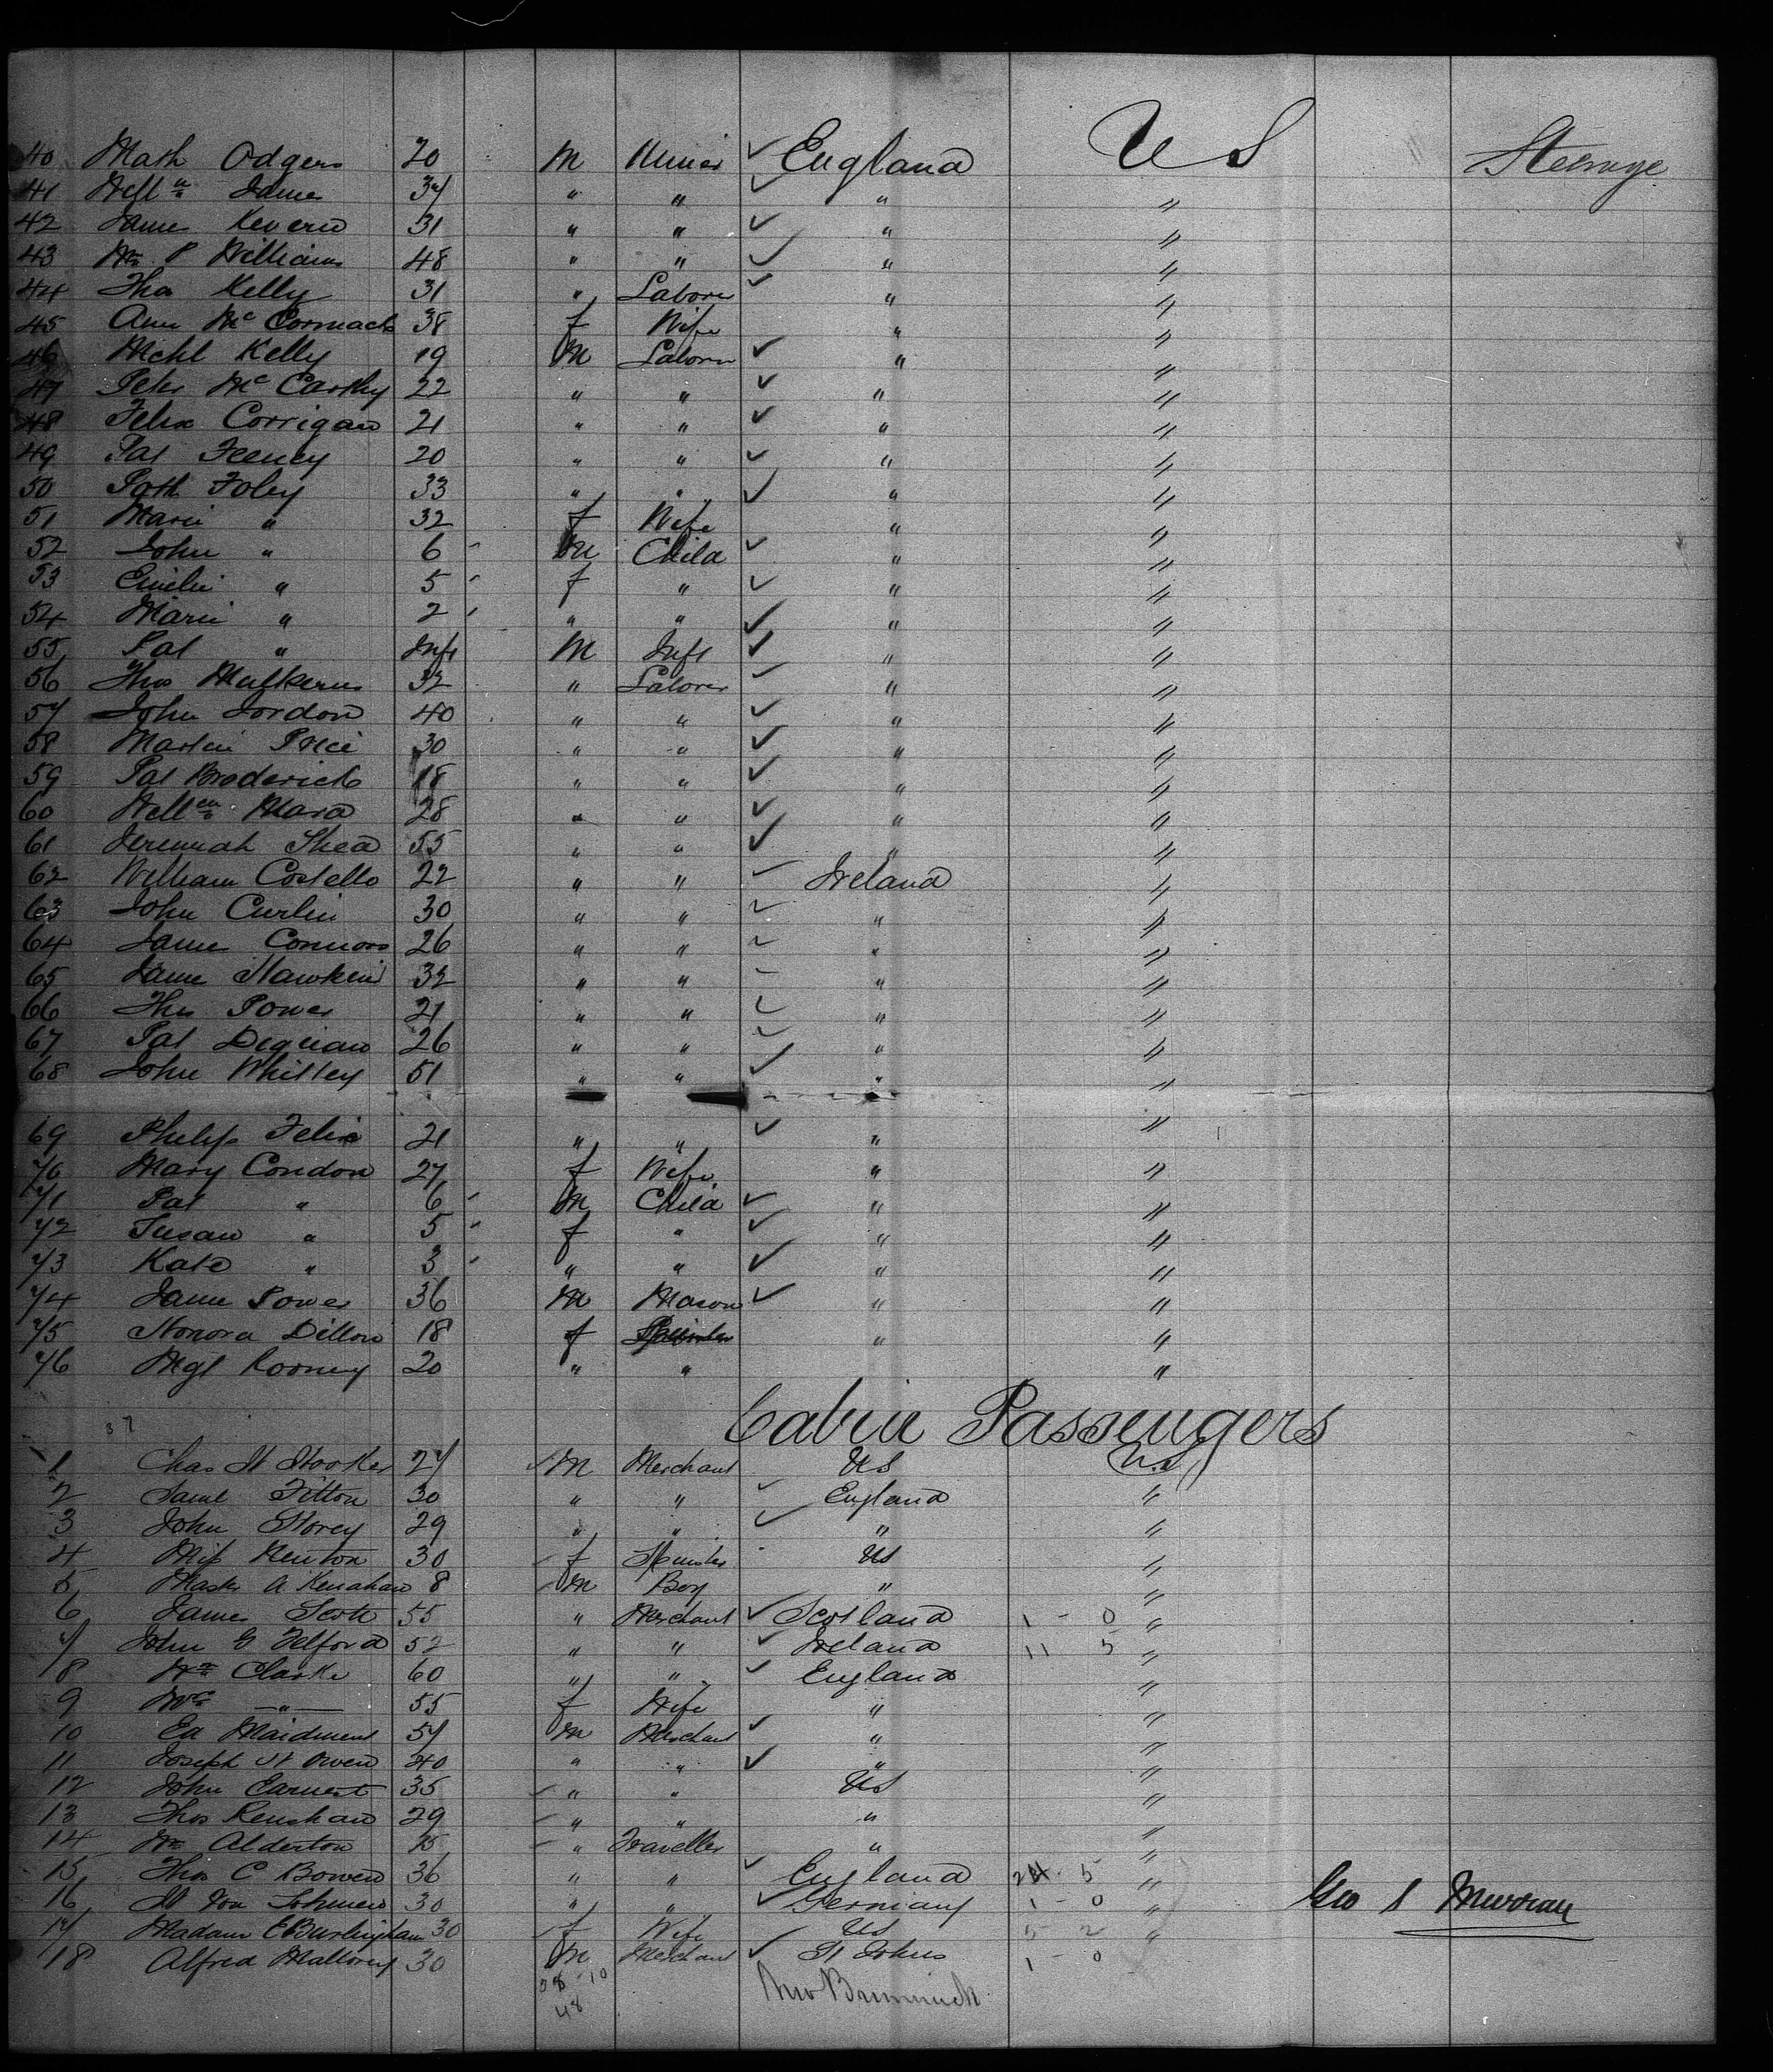 40 Math Odgers 20 M Miner ✓ England U S Steerage
41 Willm James 34 " " ✓ " "
42 James Kevern 31 " " ✓ " "
43 Wm P Williams 48 " " ✓ " "
44 Tho Kelly 31 " Laborer ✓ " "
45 Ann McCormack 38 f Wife " "
46 Michl Kelly 19 M Laborer ✓ " "
47 Peter McCarthy 22 " " ✓ " "
48 Felix Corrigan 21 " " ✓ " "
49 Pat Feeney 20 " " ✓ " "
50 Patk Foley 33 " " ✓ " "
51 Maria " 32 f Wife " "
52 John " 6 M Child ✓ " "
53 Emilie " 5 f " ✓ " "
54 Maria " 2 " " ✓ " "
55 Pat " Inft M Inft ✓ " "
56 Thos Mulkerns 32 " Laborer ✓ " "
57 John Jordon 40 " " ✓ " "
58 Martin Price 30 " " ✓ " "
59 Pat Broderick 18 " " ✓ " "
60 Willm Mara 28 " " ✓ " "
61 Jeremiah Shea 55 " " ✓ " "
62 William Costello 22 " " ✓ Ireland "
63 John Curlin 30 " " ✓ " "
64 James Connors 26 " " ✓ " "
65 James Hawkins 32 " " ✓ " "
66 Thos Power 21 " " ✓ " "
67 Pat Degnan 26 " " ✓ " "
68 John Whitley 51 " " ✓ " "
69 Philip Felix 21 " " ✓ " "
70 Mary Condon 27 f Wife " "
71 Pat " 6 M Child ✓ " "
72 Susan " 5 f " ✓ " "
73 Kate " 3 " " ✓ " "
74 James Power 36 M Mason ✓ " "
75 Honora Dillon 18 f Spinster " "
76 Mgt Rooney 20 " " "
Cabin Passengers
37
1 Chas H Hooker 27 M Merchant US U.S
2 Saml Fitton 30 " " ✓ England "
3 John Storey 29 " " ✓ " "
4 Miss Newton 30 f Spinster US "
5 Master A Kenahan 8 M Boy " "
6 James Scott 55 " Merchant ✓ Scotland 1 - 0 "
7 John G Telford 52 " " ✓ Ireland 11 5 "
8 Wm Clarke 60 " " ✓ England "
9 Mrs — " — 55 f Wife " "
10 Ed Maidment 57 M Merchant ✓ " "
11 Joseph H Owen 40 " " ✓ " "
12 John Earnest 35 " " US "
13 Thos Renshaw 29 " " " "
14 Wm Alderton 25 " Traveller " "
15 Thos C Bowen 36 " " ✓ England 24 - 5 "
16 H Von 30 " " ✓ Germany 1 - 0 " Geo S Murray
17 Madam E Burlingham 30 f Wife US 5 2 "
18 Alfred Mallorey 30 M Merchant ✓ St Johns 1 0
38 - 10 New Brunswick
48